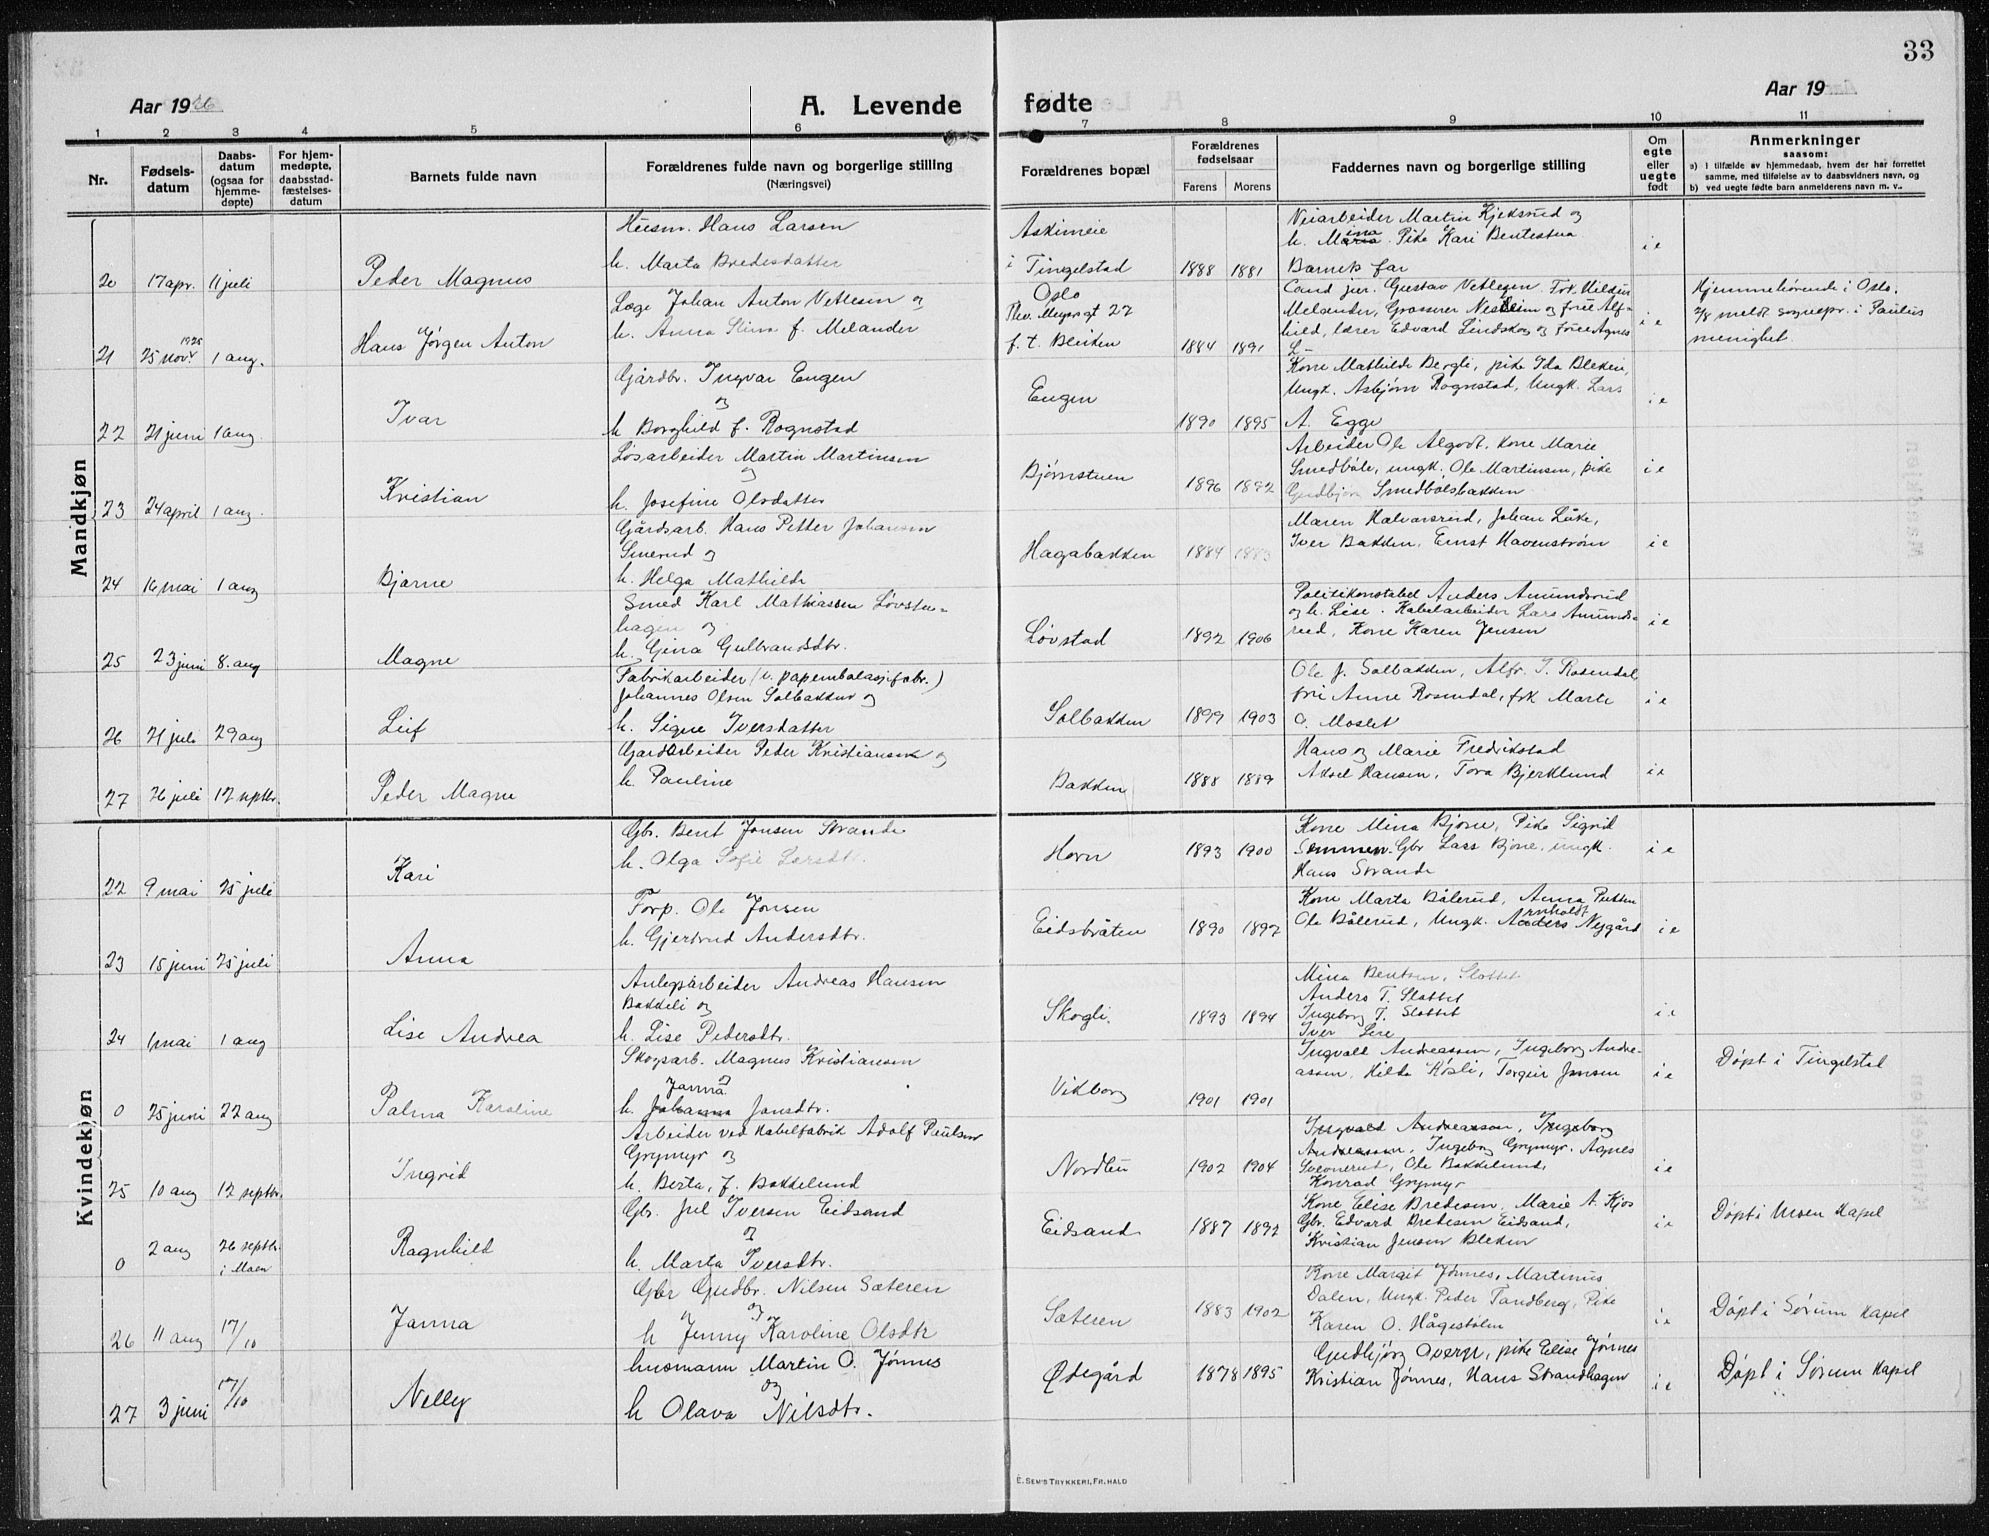 33
Aar 1926
A. Levende
fødte
Aar 19
1 2 3 4 5 6 7 8 9 10 11
Nr.
Fødsels-
datum
Daabs-
datum
(ogsaa for
hjemme-
døpte)
For hjem-
medøpte,
daabsstad-
fæstelses-
datum
Barnets fulde navn
Forældrenes fulde navn og borgerlige stilling
(Næringsvei)
Forældrenes bopæl
Forældrenes
fødselsaar
Farens Morens
Faddernes navn og borgerlige stilling
Om
egte
eller
uegte
født
Anmerkninger
saasom:
a) i tilfælde av hjemmedaab, hvem der har forrettet
samme, med tilføielse av to daabsvidners navn, og
b) ved uegte fødte barn anmelderens navn m. v..
Mandkjøn
20 17 apr. 11 juli Peder Magnus
Husm. Hans Larsen
h. Marta Bredesdatter
Askimeie
i Tingelstad 1888 1881
Veiarbeider Martin Kjeksrud og
h. Marsa ina Pike Kari Bentestua
Barnets far
i e
21 25 nov. 1925 1 aug. Hans Jørgen Anton
Læge Johan Anton Vetlesen og
h. Anna Stina f. Melander
Oslo
Thv. Meyersgt 27
f. t. Bleiken 1884 1891
Cand jur. Gustav Vetlesen. Frk Hildur
Melander, Grosserer Nesheim og frue Alf-
hild, lærer Edvard Lindskog og frue Agnes
L-
i e
Hjemmehørende i Oslo.
2/8 meldt sognepr. i Paulus
menighet.
22 21 juni 1 aug. Ivar
Gårdbr. Ingvar Engen
og
h Borghild f. Rognstad
Engen 1890 1895
Kone Mathilde Bergli, pike Ida Bleken,
Ungk. Asbjørn Rognstad, Ungk. Lars
A. Egge
i e
23 24 april 1 aug. Kristian
Løsarbeider Martin Martinsen
og
h. Josefine Olsdatter
Bjørnstuen 1896 1892
Arbeider Ole Algodt. kone Marie
Smedbøle, ungk. Ole Martinsen, pike
Gudbjør Smedbølsbakken
i e
24 16 mai 1 aug Bjarne
Gårdsarb. Hans Petter Johansen
Smerud og
h. Helga Mathilde
Hagabakken 1884 1883
Maren Halvorsrud, Johan Luke,
Iver Bakken, Ernst Havenstrøm
i e
25 23 juni 8. aug Magne
Smed Karl Mathiassen Løvsten-
hagen og
h. Gina Gulbrandsdtr.
Løvstad 1892 1906
Politikonstabel Anders Amundsrud
og h. Lise. Kabelarbeider Lars Amunds-
rud, Kone Karen Jensen
i e
26 21 juli 29 aug Leif
Fabrikarbeider (v. papembalasjefabr.)
Johannes Olsen Solbakken og
h. Signe Iversdatter
Solbakken 1899 1903
Ole J. Solbakken, Alfr. T. Rosendal
fru Anne Rosendal, frk Marte
O. Moslet
i e
27 26 juli 12 septbr. Peder Magne
Gardarbeider Peder Kristiansen og
h. Pauline
Bakken 1888 1889
Hans og Marie Fredrikstad
Aksel Hansen, Tora Bjerklund
i e
Kvindekjøn
22 9 mai 25 juli Kari
Gbr. Bent Jonsen Strande
h. Olga Sofie Larsdtr.
Horn 1893 1900
Kone Mina Bjone, Pike Sigrid
Semmen. Gbr Lars Bjone, ungk.
Hans Strande
i e
23 15 juni 25 juli Anna
Forp. Ole Jonsen
h. Gjertrud Andersdtr.
Eidsbråten 1890 1892
Kone Marta Bålerud, Anna Putten
Ole Bålerud, Ungk. Anders rnholdt Nygård
i e
24 1 mai 1 aug Lise Andrea
Anlegsarbeider Andreas Hansen
Bakkeli og
h. Lise Pedersdtr.
Skogli 1893 1894
Mina Bentsen, Slottet
Anders T. Slottet
Ingeborg T. Slottet
Iver Lere
i e
0 25 juni 22 aug Palma Karoline
Skogsarb. Magnus Kristiansen
og Janna
h. Johanna Jonsdtr.
Vikborg 1901 1901
Ingvald Andreassen, Ingeborg Andre-
assen, Hilda Køsli, Torgeir Jensen
i e
Døpt i Tingelstad
25 10 aug 12 septbr. Ingrid
Arbeider ved Kabelfabrik Adolf Paulsen
Grymyr og
h. Berta, f. Bakkelund
Nordlie 1902 1904
Ingvald Andreassen, Ingeborg
Andreassen, Ingeborg Grymyr. Agnes
Svennerud, Ole Bakkelund,
Konrad Grymyr
i e
0 2 aug 26 septbr.
i Moen
Ragnhild
Gbr. Jul Iversen Eidsand
og
h. Marta Iversdtr.
Eidsand 1887 1892
Kone Elise Bredesen, Marie A. Kjos
Gbr. Edvard Bredesen Eidsand,
Kristian Jensen Bleken
i e
Døpt i Moen Kapel
26 11 aug 17/10 Janna
Gbr Gudbr. Nilsen Sæteren
og
h Jenny Karoline Olsdtr
Sæteren 1883 1902
Kone Margit Jønnes, Martinus
Dalen, Ungk. Peder Tandberg, Pike
Karen O. Hågestølen
i e
Døpt i Sørum Kapel
27 3 juni 17/10 Nelly
husmann Martin O. Jønnes
og
h Olava Nilsdtr.
Ødegård 1878 1895
Gudbjør Øvergr, pike Elise Jønnes
Kristian Jønnes, Hans Strandhagen
i e
Døpt i Sørum Kapel
E. SEM'S TRYKKERI, FR.HALD